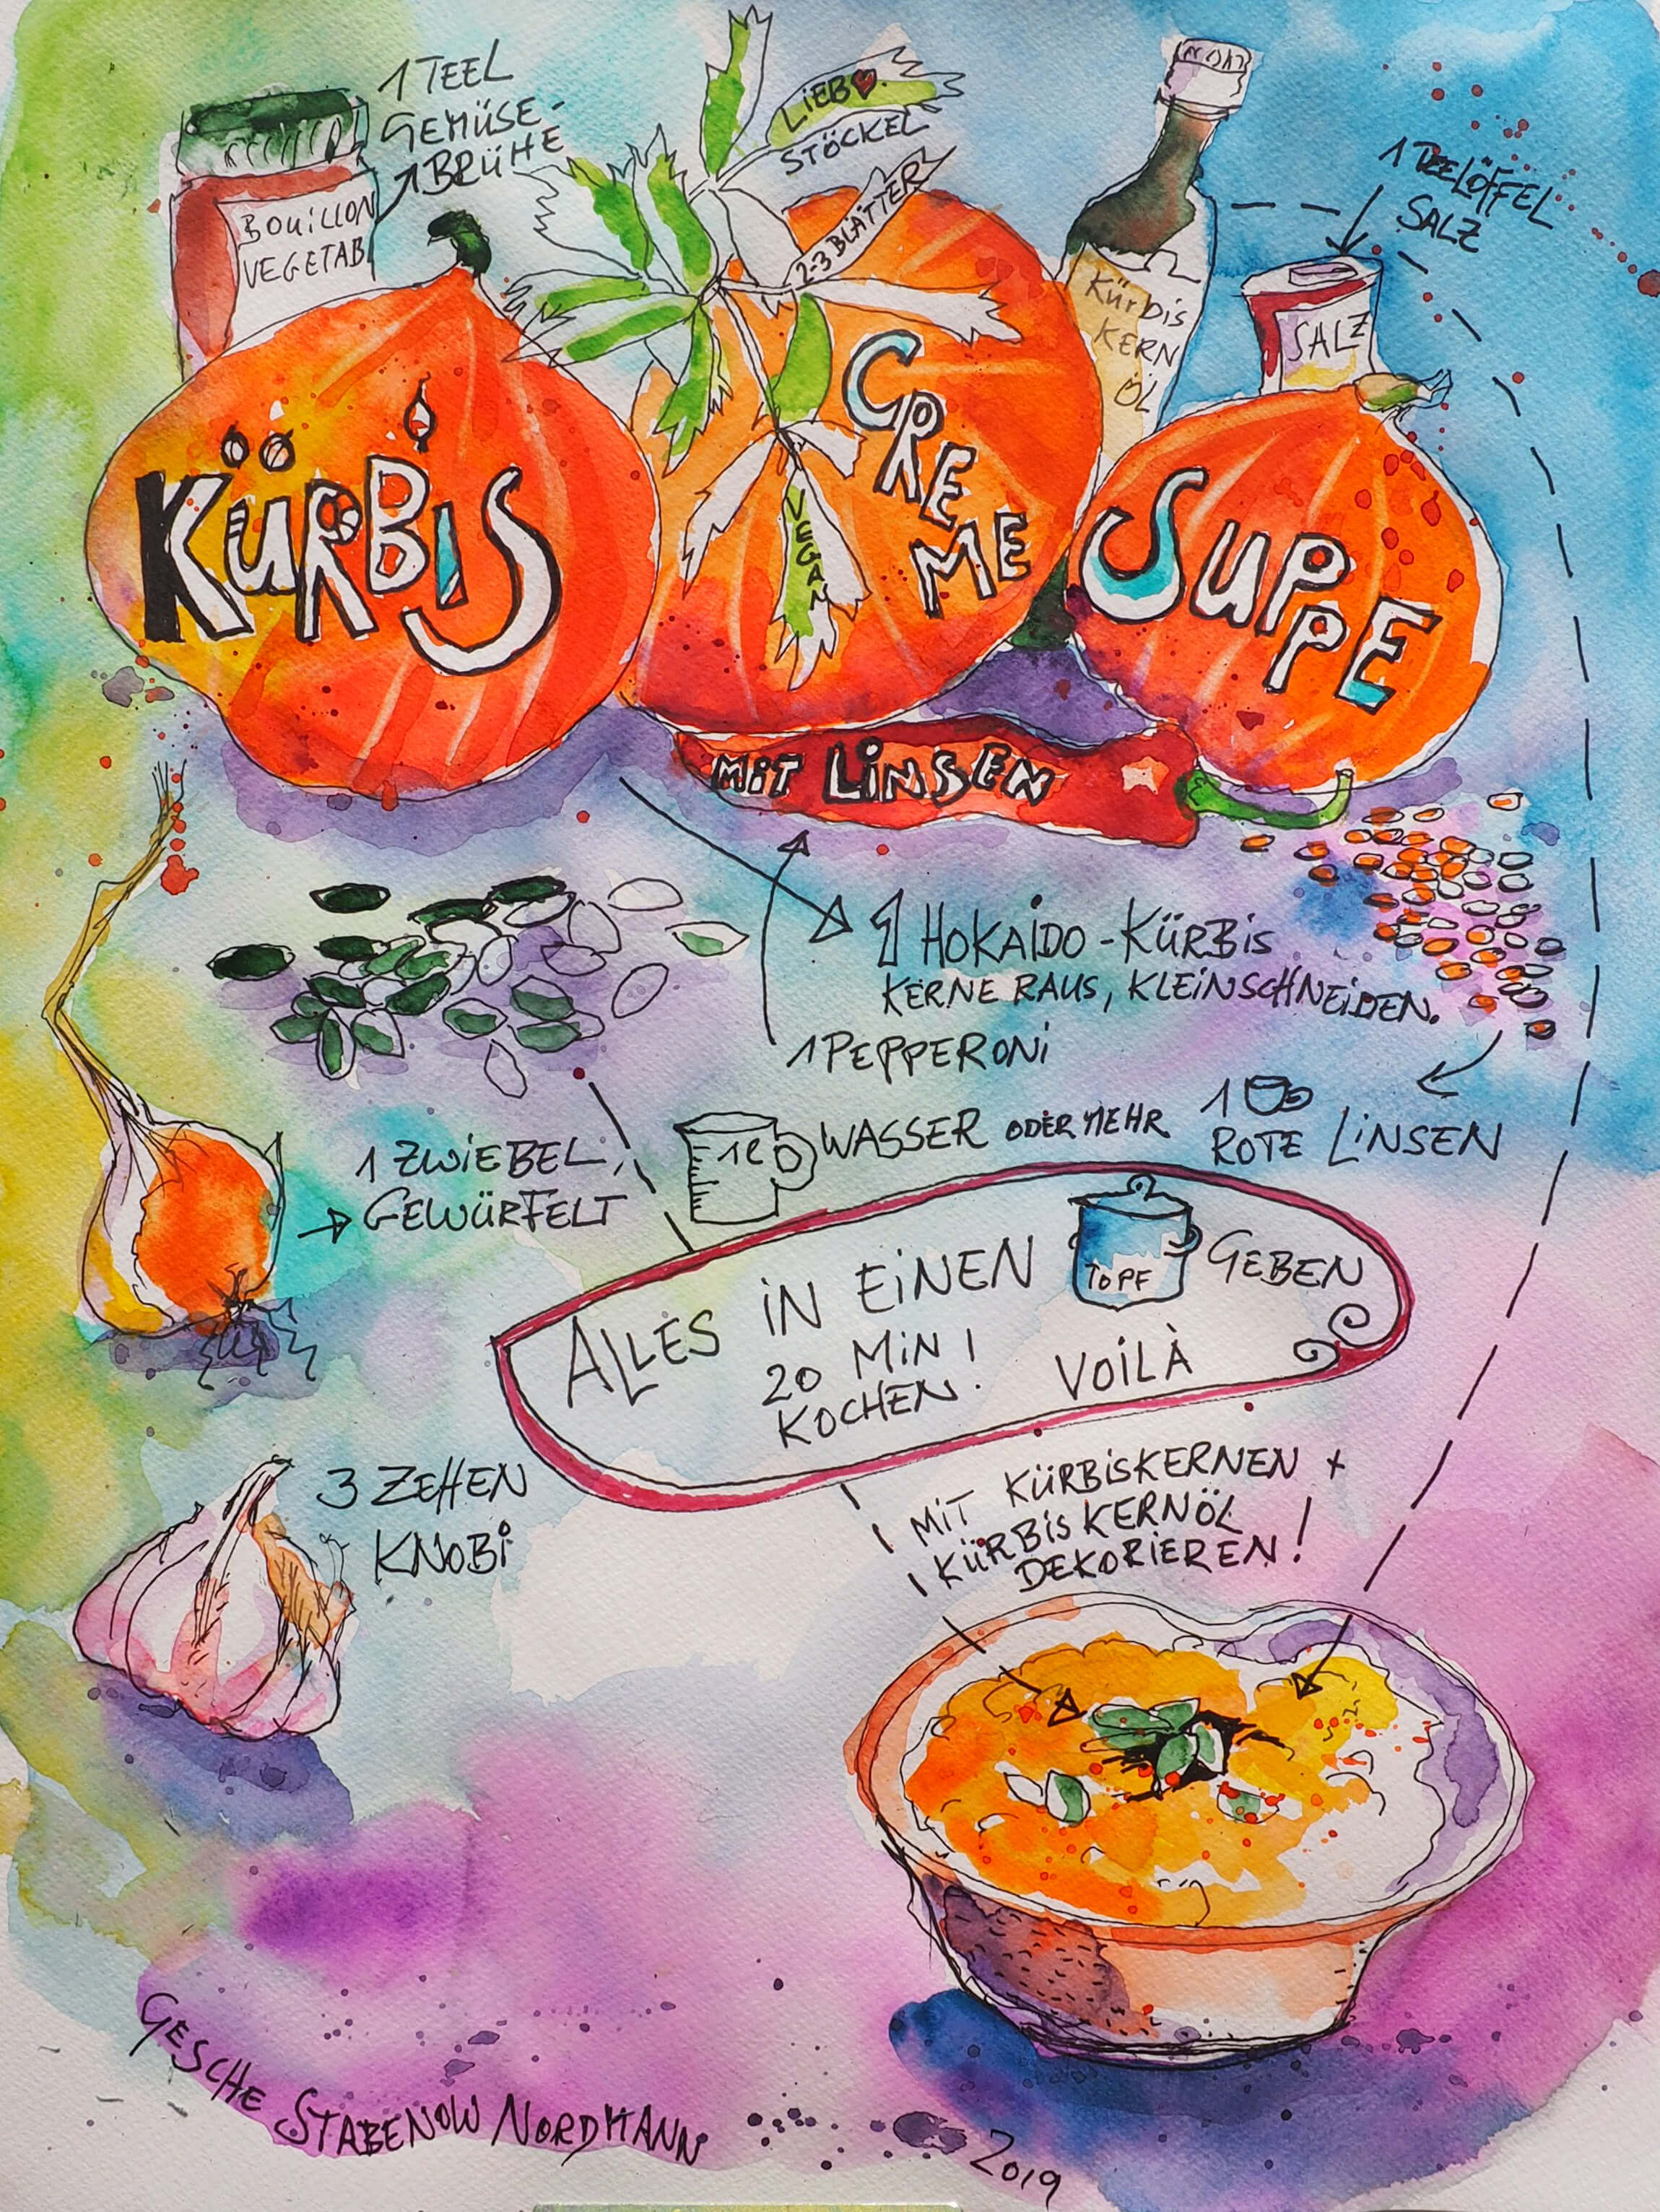 1 TEEL
GEMÜSE-
BRÜHE
BOUILLON
VEGETAB
LIEB
STÖCKEL
2-3 BLÄTTER
Kürbis
KERN
ÖL
1 TEELÖFFEL
SALZ
SALZ
KÜRBIS
CREME
VEGAN
SUPPE
MIT LINSEN
1 HOKAIDO-KÜRBIS
KERNE RAUS, KLEINSCHNEIDEN.
1 PEPPERONI
1 ZWIEBEL,
GEWÜRFELT
1 L WASSER ODER MEHR
1
ROTE LINSEN
ALLES IN EINEN TOPF GEBEN
20 MIN!
KOCHEN. VOILÀ
3 ZEHEN
KNOBI
MIT KÜRBISKERNEN +
KÜRBISKERNÖL
DEKORIEREN!
GESCHE STABENOW NORDMANN
2019